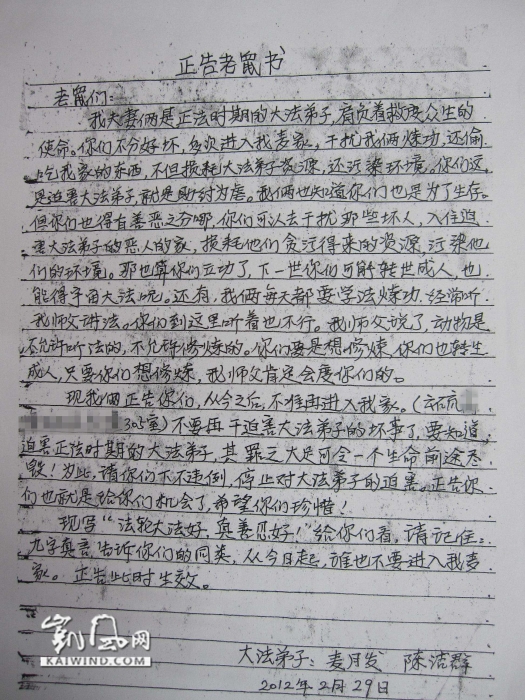 正告老鼠书
老鼠们：
我夫妻俩是正法时期的大法弟子，肩负着救度众生的
使命。你们不分好坏，多次进入我麦家，干扰我俩炼功，还偷
吃我家的东西，不但损耗大法弟子资源，还污染环境。你们这
是迫害大法弟子，就是助纣为虐。我俩也知道你们也是为了生存。
但你们也得有善恶之分哪，你们可以去干扰那些坏人，入住迫
害大法弟子的恶人的家，损耗他们贪污得来的资源，污染他
们的环境。那也算你们立功了，下一世你们可能转世成人，也
能得宇宙大法呢。还有，我俩每天都要学法炼功，经常听
我师父讲法。你们到这里听着也不行。我师父说了，动物是
不允许听法的，不允许修炼的。你们要是想修炼，你们也转生
成人，只要你们想修炼，我师父肯定会度你们的。
现我俩正告你们，从今之后，不准再进入我家。（
303室）不要再干迫害大法弟子的坏事了，要知道，
迫害正法时期的大法弟子，其罪之大足可令一个生命前途尽
毁！为此，请你们不要，停止对大法弟子的迫害。正告你
们也就是给你们机会了，希望你们珍惜！
现写“法轮大法好，真善忍好”给你们看，请记住：
九字真言，告诉你们的同类，从今日起，谁也不要进入我麦
家。正告此时生效。
大法弟子：麦月发 陈洁群
2012年2月29日
凯风网
KAIWIND.COM